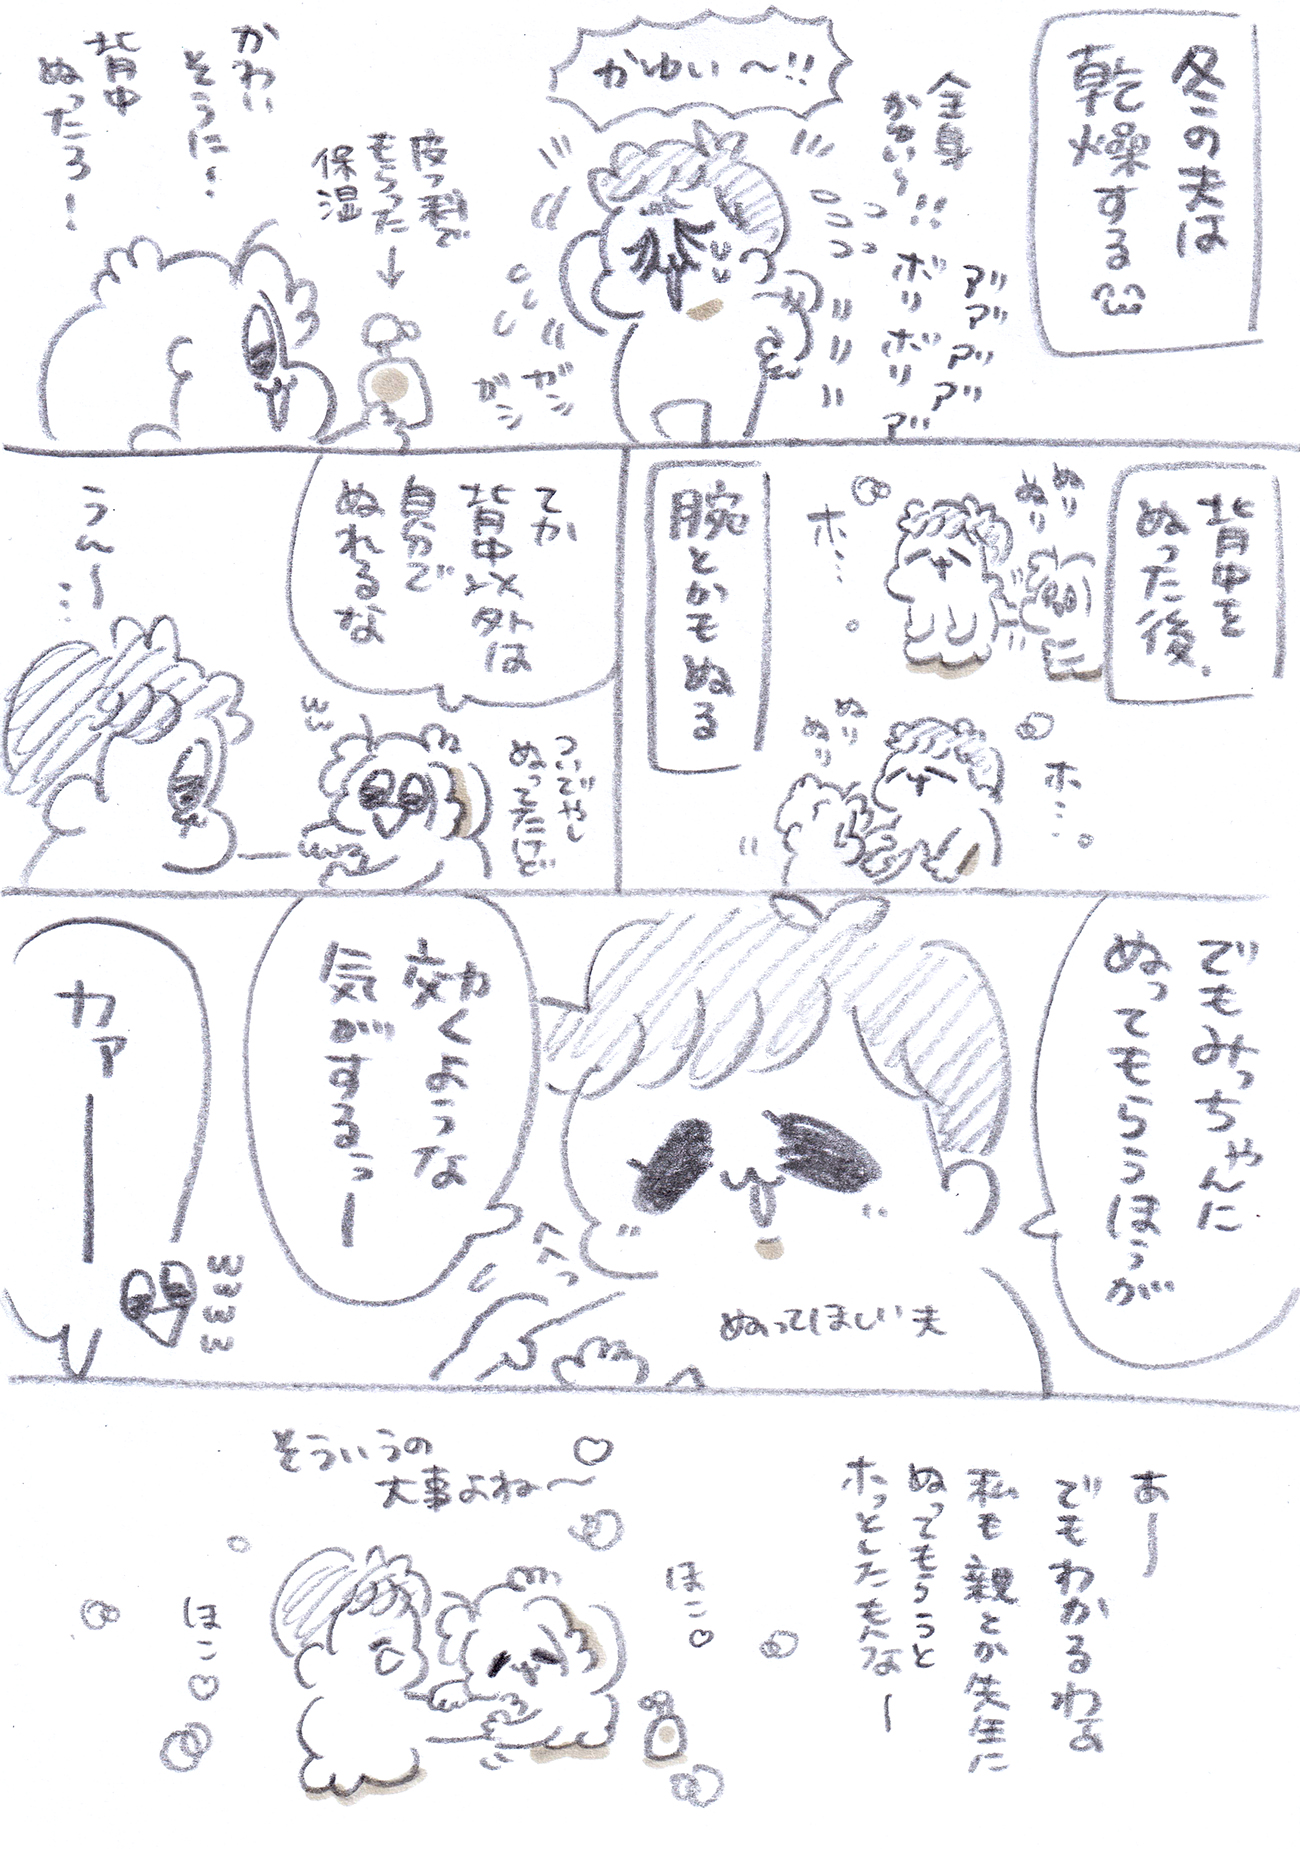 冬の夫は
乾燥する
全身
かゆい〜!!
ボリボリ
アアアアア
かゆい〜!!
ガシ
ガシ
皮フ科で
もらった
保湿
かわい
そうに!
背中
ぬったろ!
背中を
ぬった後、
ぬり
ぬり
ホ…
腕とかもぬる
ぬり
ぬり
ホ…
てか
背中以外は
自分で
ぬれるな
ついでやし
ぬってたけど
う〜ん…
でもみっちゃんに
ぬってもらうほうが
効くような
気がするぅー
ぬってほしい夫
カァー
あー
でもわかるわぁ
私も親とか先生に
ぬってもらうと
ホッとしたもんなー
そういうの
大事よね〜♡
ほこ♡
ほこ♡